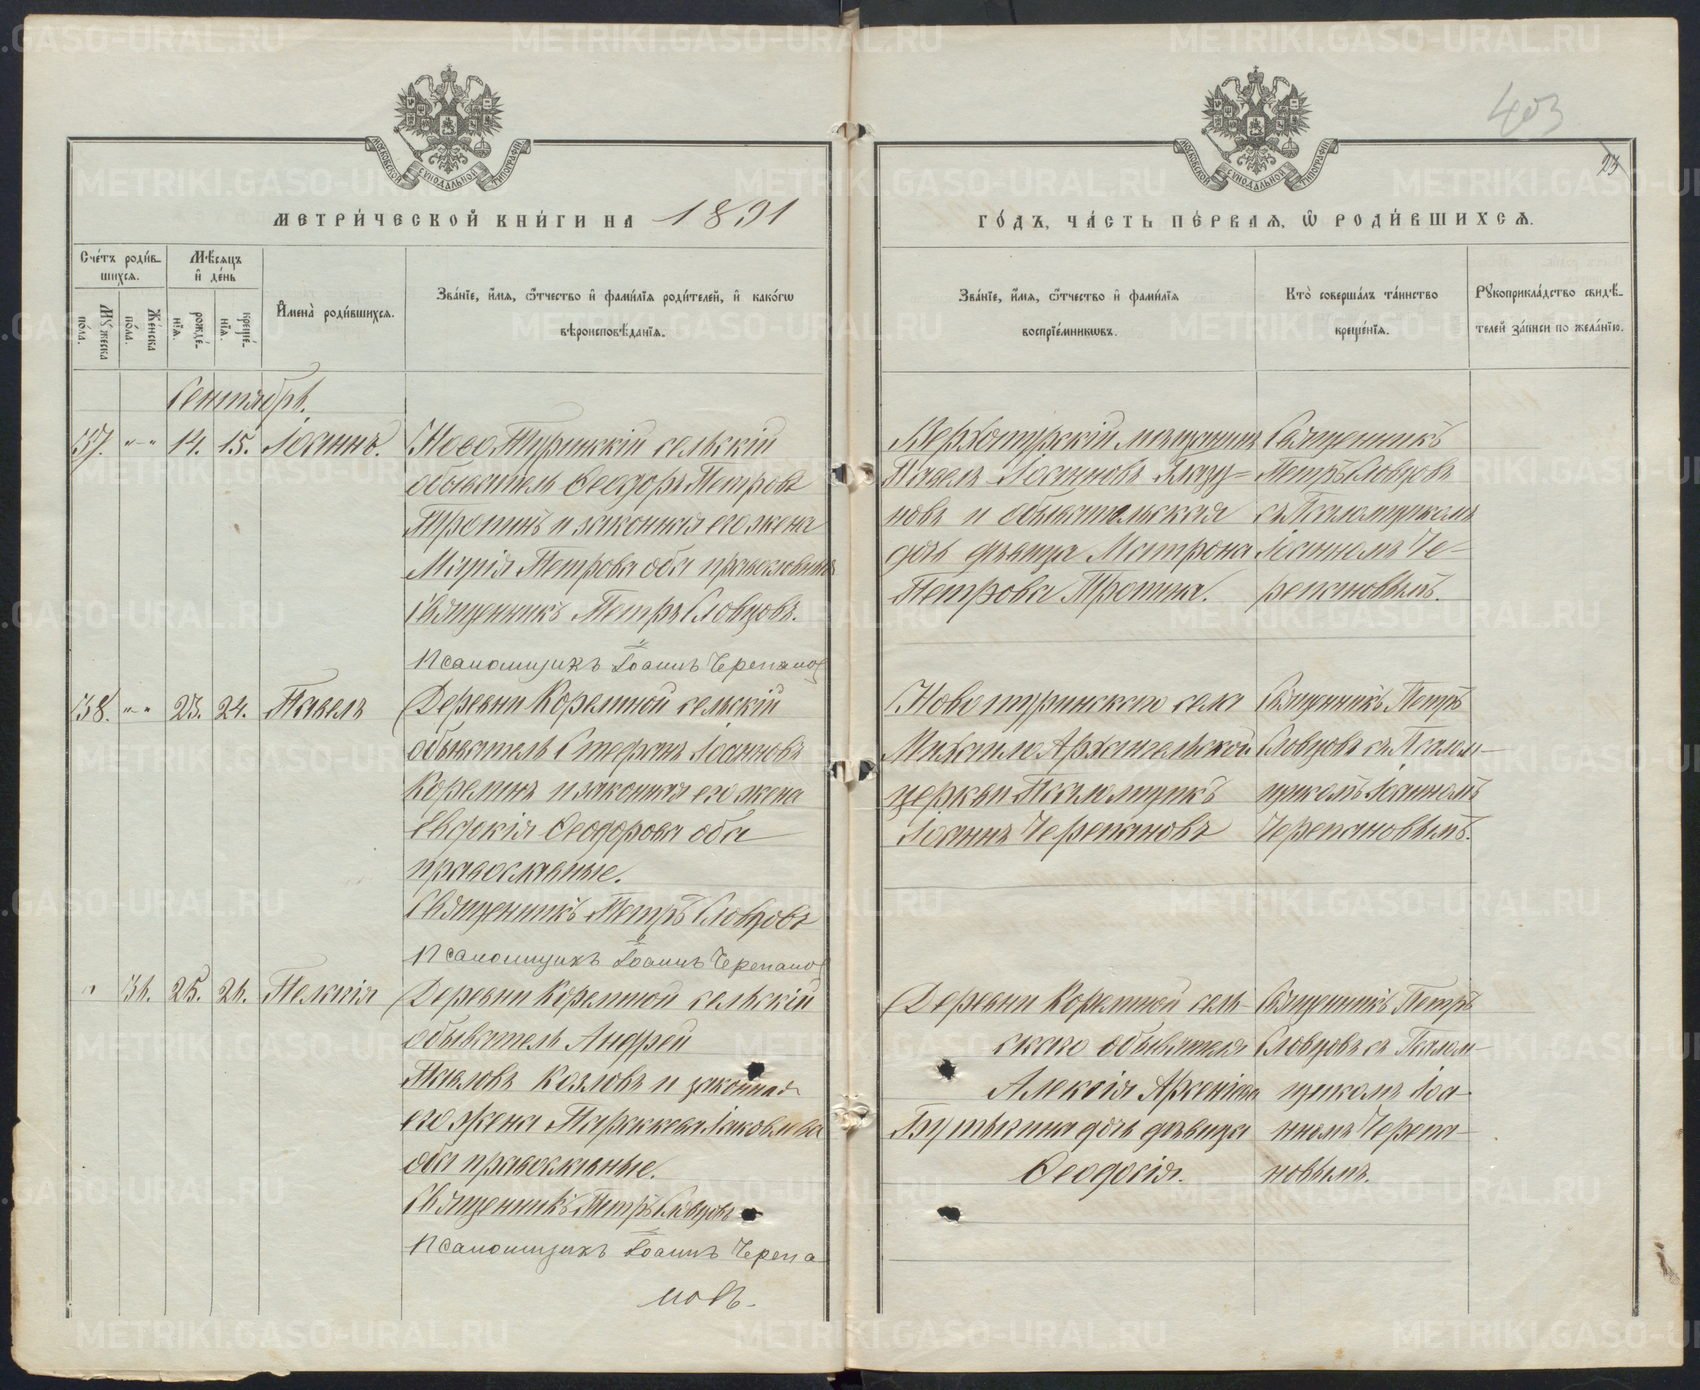 403
23
МОСКОВСКОЙ СѴНОДАЛЬНОЙ ТИПОГРАФІИ
МОСКОВСКОЙ СѴНОДАЛЬНОЙ ТИПОГРАФІИ
МЕТРИ́ЧЕСКОЙ КНИ́ГИ НА 1891
ГО́ДЪ, ЧА́СТЬ ПЕ́РВАЯ, Ѽ РОДИ́ВШИХСЯ.
Сче́тъ роди́в-
шихся.
Мѣ́сяцъ
и҆ де́нь
Мꙋ́жеска
по́ла.
Же́нска
по́ла.
рожде́-
нїя.
креще́-
нїя.
И҆мена̀ роди́вшихся.
Зва́нїе, и҆́мя, ѻ҆́тчество и҆ фами́лїя роди́телей, и҆ како́гѡ
вѣроисповѣ́данїя.
Зва́нїе, и҆́мя, ѻ҆́тчество и҆ фами́лїя
воспрїе́мникѡвъ.
Кто̀ соверша́лъ та́инство
креще́нїя.
Рꙋкоприкла́дство свидѣ́-
телей за́писи по жела́нїю.
Сентябрь.
37. "-" 14. 15. Іоаннъ.
Ново Туринскій сельскій
обыватель Ѳеодоръ Петровъ
Тропинъ и законная его жена
Марія Петрова оба православные
Священникъ Петръ Словцовъ.
Псаломщикъ Іоаннъ Черепанов
Верхотурскій мѣщанинъ
Павелъ Іоанновъ
новъ и обывательская
дочь дѣвица Матрона
Петрова Тропина.
Священникъ
Петръ Словцовъ
съ Псаломщикомъ
Іоанномъ Че-
репановымъ.
38. "-" 23. 24. Павелъ
Деревни Корелиной сельскій
обыватель Стефанъ Іоанновъ
Корелинъ и законная его жена
Евдокія Ѳеодорова оба
православные.
Священникъ Петръ Словцовъ
Псаломщикъ Іоаннъ Черепанов
Новотуринскаго села
Михаило Архангельской
церкви Псаломщикъ
Іоаннъ Черепановъ
Священникъ Петръ
Словцовъ съ Псалом-
щикомъ Іоанномъ
Черепановымъ.
" 36. 25. 26. Пелагія
Деревни Корелиной сельскій
обыватель Андрей
Павловъ Козловъ и законная
его жена Параскева Іаковлева
оба православные.
Священникъ Петръ Словцовъ
Псаломщикъ Іоаннъ Черепа
новъ.
Деревни Корелиной сель-
скаго обывателя
Алексія Арсеніева
дочь дѣвица
Ѳеодосія.
Священникъ Петръ
Словцовъ съ Псалом-
щикомъ Іоа-
нномъ Черепа-
новымъ.